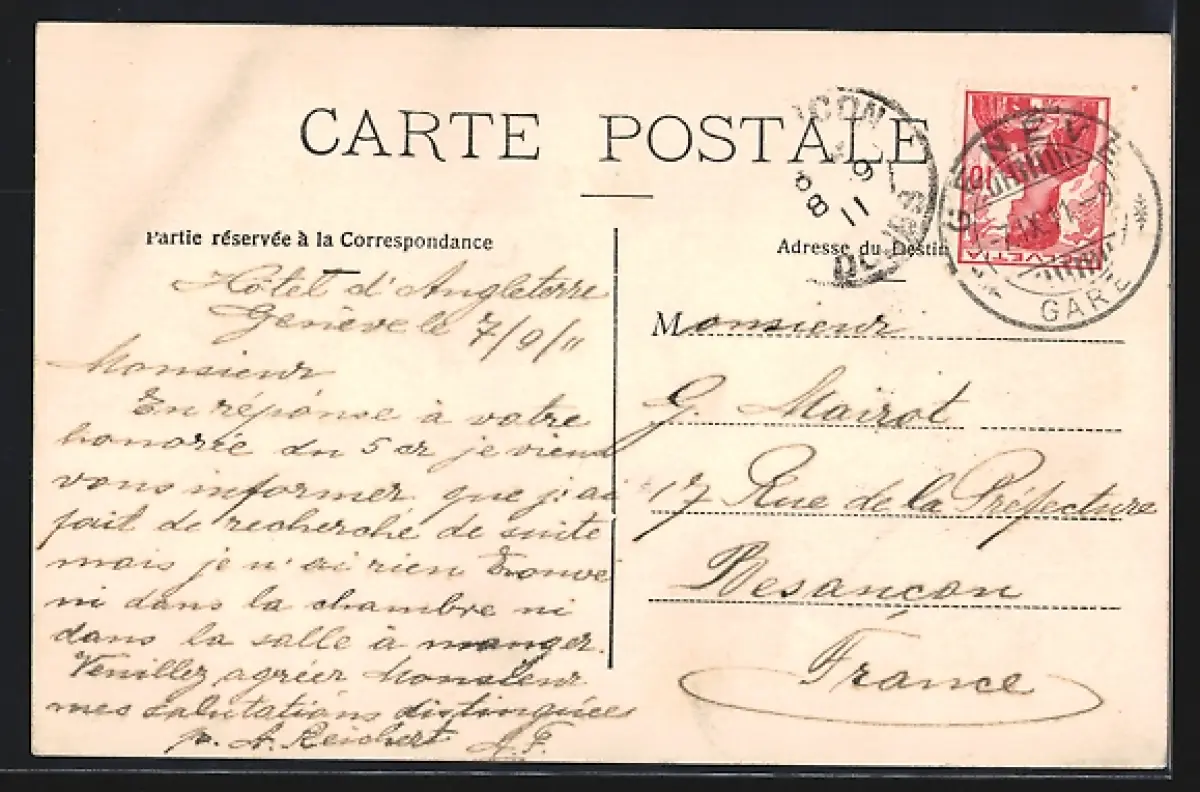 CARTE POSTALE
Partie réservée à la Correspondance
Hôtel d'Angleterre
Genève le 7/9/11
Monsieur
En réponse à votre
honorée du 5 cr je viens
vous informer que j'ai
fait de recherche de suite
mais je n'ai rien trouvé
ni dans la chambre ni
dans la salle à manger.
Veuillez agréer Monsieur
mes salutations distinguées
p. A. Reichert A. F.
Adresse du Destin
Monsieur
G. Mairot
17 Rue de la Préfecture
Besançon
France
HELVETIA
10
GENÈVE
GARE
ÇON
DOUBS
8 9
11